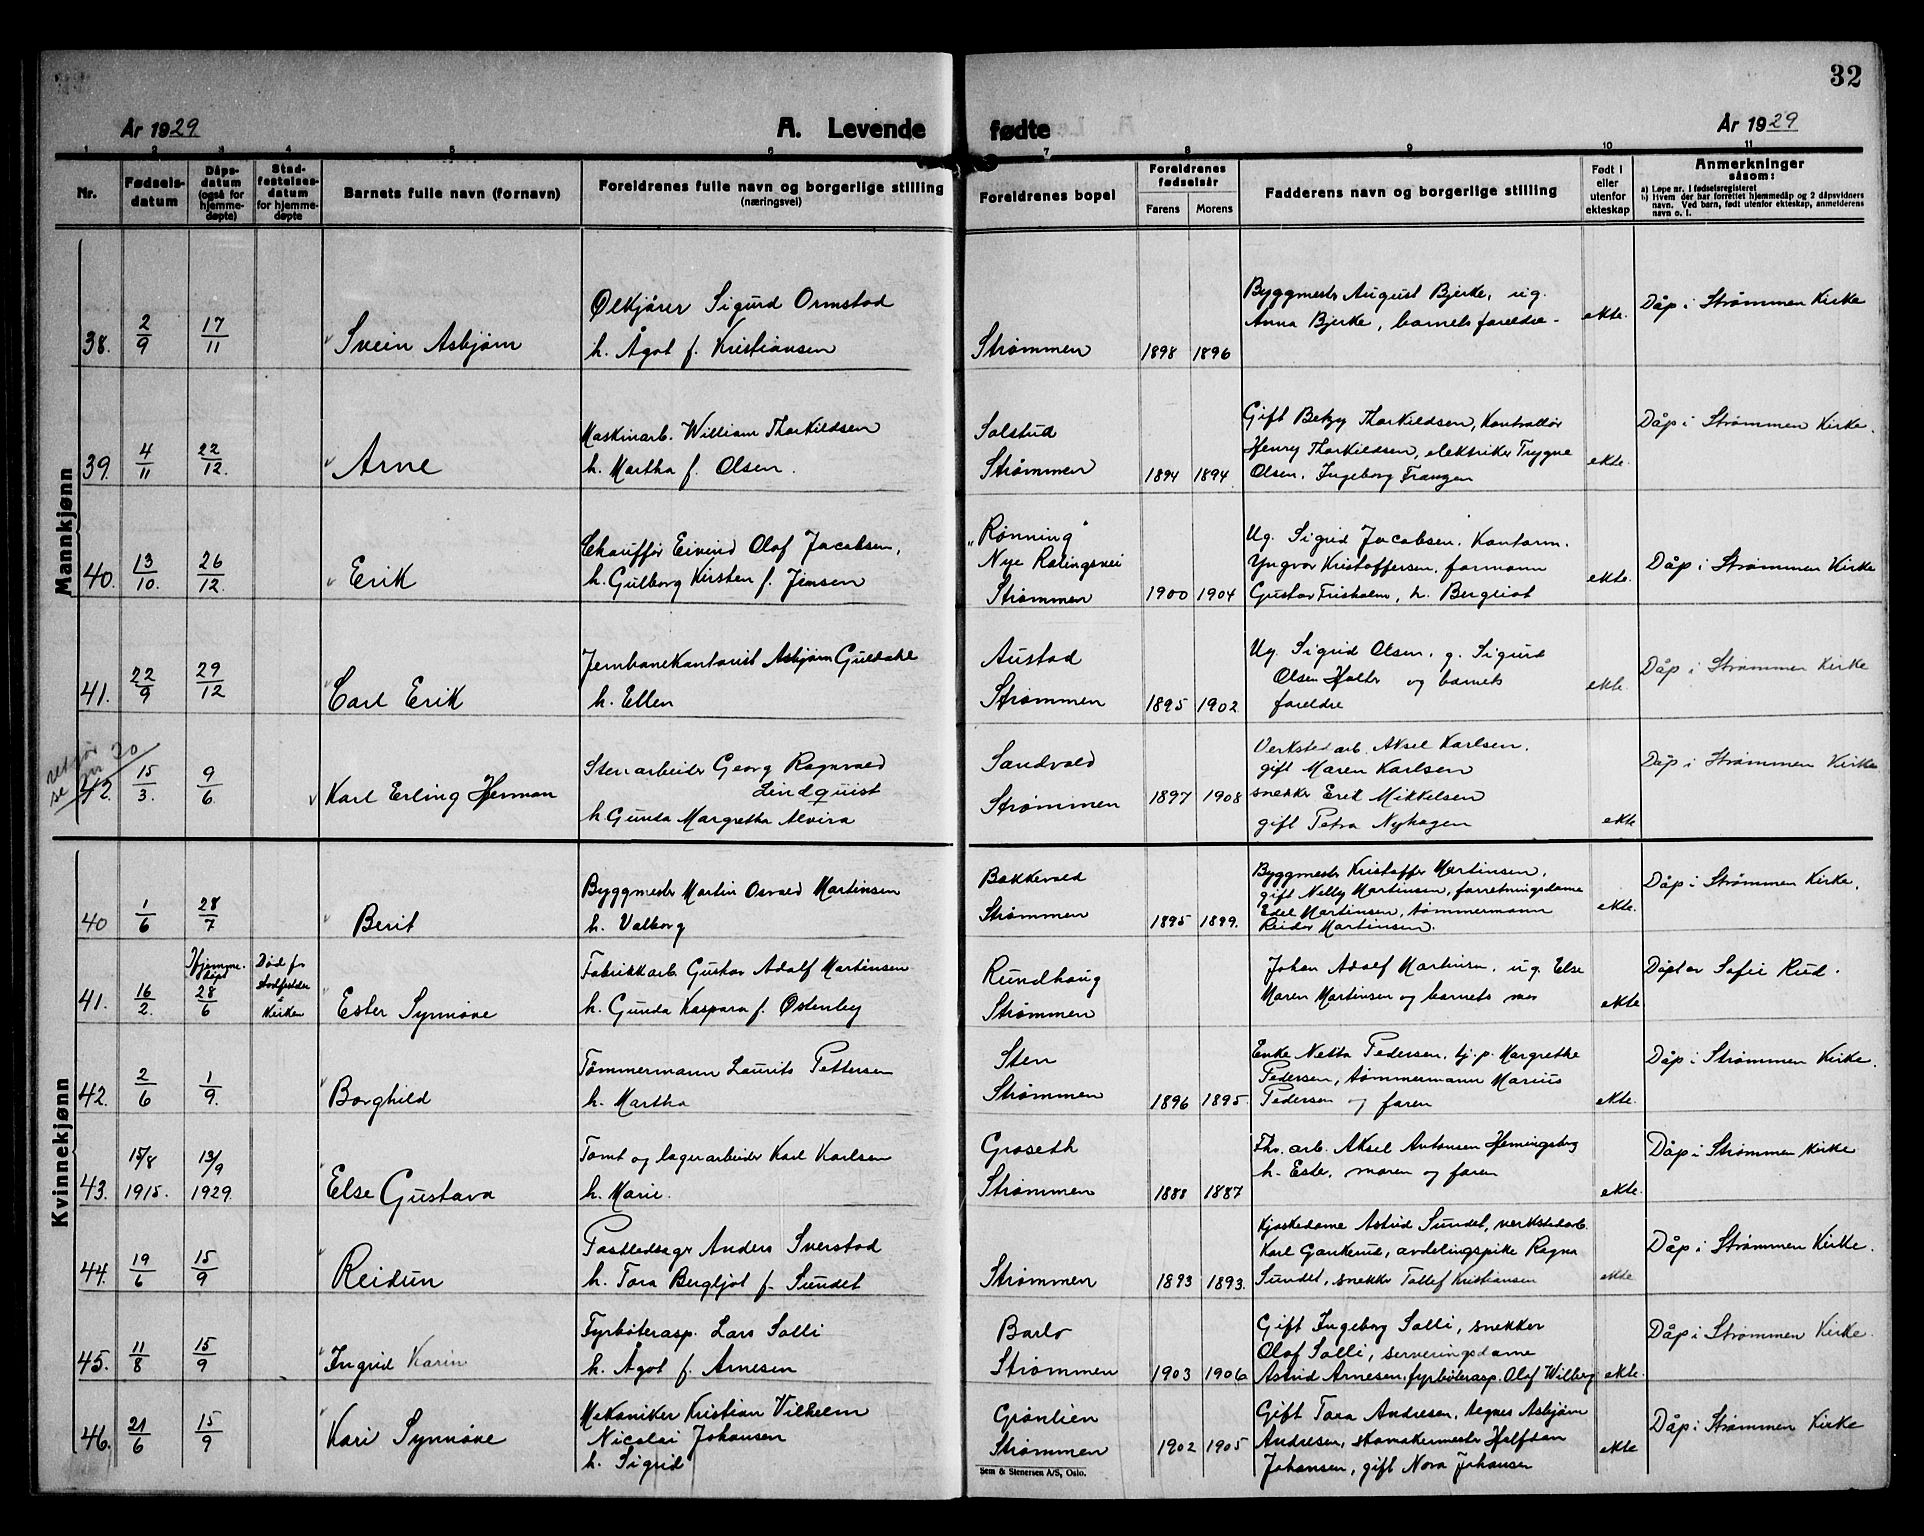 32
År 1929
A. Levende fødte
År 1929
1 2 3 4 5 6 7 8 9 10 11
Nr.
Fødselsdatum
Dåpsdatum (også for hjemmedøpte)
Stadfestelsesdatum for hjemmedøpte
Barnets fulle navn (fornavn)
Foreldrenes fulle navn og borgerlige stilling
(næringsvei)
Foreldrenes bopel
Foreldrenes fødselsår
Farens
Morens
Fadderens navn og borgerlige stilling
Født i eller utenfor ekteskap
Anmerkninger
såsom:
a) Løpe nr. i fødselsregisteret
b) Hvem der har forrettet hjemmedåp og 2 dåpsvidners
navn. Ved barn, født utenfor ekteskap, anmelderens
navn o. l.
Mannkjønn
38. 2/9 17/11 Svein Asbjørn
Ølkjører Sigurd Ormstad
h. Ågot f. Kristiansen
Strømmen 1898 1896
Byggmestr August Bjerke, ug.
Anna Bjerke, barnets foreldre
ekte. Dåp i Strømmen Kirke
39. 4/11 22/12. Arne
Maskinarb. William Thorkildsen
h. Martha f. Olsen.
Solstud
Strømmen 1894 1894
Gift Betzy Thorkildsen, Kontrollør
Henry Thorkildsen, elektriker Trygve
Olsen, Ingeborg Franzen
ekte. Dåp i Strømmen Kirke.
40. 13/10. 26/12. Erik
Chauffør Eivind Olaf Jacobsen,
h. Gulborg Kirsten f. Jensen
"Rønning"
Nye Rælingsvei
Strømmen 1900 1904
Ug. Sigrid Jacobsen, Kontorm.
Yngvar Kristoffersen, formann
Gustav Frisholm, h. Bergliot
ekte. Dåp i Strømmen Kirke
41. 22/9 29/12 Carl Erik
Jernbanekontorist Asbjørn Guldahl
h. Ellen
Austad
Strømmen 1895 1902
Ug. Sigrid Olsen, g. Sigurd
Olsen Holter og barnets
foreldre
ekte. Dåp i Strømmen Kirke
se nr 20
42. 15/3. 9/6. Karl Erling Herman
Stenarbeider Georg Ragnvald
Lindquist
h. Gunda Margretha Alvira
Sandvold
Strømmen 1897 1908
Verksted arb. Aksel Karlsen,
gift Maren Karlsen
snekker Erik Mikkelsen
gift Petra Nyhagen
ekte Dåp i Strømmen Kirke
Kvinnekjønn
40 1/6 28/7 Berit
Byggmestr Martin Osvald Martinsen
h. Valborg
Bakkevold
Strømmen 1895 1899.
Byggmestr Kristoffer Martinsen,
gift Nelly Martinsen, forretningsdame
Edel Martinsen, tømmermann
Reidar Martinsen.
ekte. Dåp i Strømmen Kirke.
41. 16/2. Hjemmedøpt 28/6 Død før stadfestelse i Kirken Ester Synnøve
Fabrikkarb. Gustav Adolf Martinsen
h. Gunda Kaspara f. Østenby
Rundhaug
Strømmen
Johan Adolf Martinsen, ug. Else
Maren Martinsen og barnets mor
ekte Døpt av Sofie Rud.
42. 2/6 1/9. Borghild
Tømmermann Laurits Pettersen
h. Martha
Sten
Strømmen 1896 1895.
Enke Netta Pedersen, tj.p. Margrethe
Pedersen, tømmermann Marius
Pedersen og faren
ekte. Dåp i Strømmen Kirke.
43. 15/8 1915. 13/9 1929. Else Gustava
Tomt og lagerarbeider Karl Karlsen
h. Marie.
Groseth
Strømmen 1888 1887
Fbr. arb. Aksel Antonsen Hemingsberg
h. Ester, moren og faren
ekte. Dåp i Strømmen Kirke
44. 19/6 15/9 Reidun
Postledsager Anders Sverstad
h. Tora Bergljot f. Sundet
Strømmen 1893 1893.
Kjoskedame Astrid Sundet, verkstedarb.
Karl Gankerud, avdelingspike Ragna
Sundet, snekker Tollef Kristiansen
ekte Dåp i Strømmen Kirke.
45. 11/8 15/9 Ingrid Karin
Fyrbøterasp. Lars Solli
h. Ågot f. Arnesen
Barlo
Strømmen 1903 1906
Gift Ingeborg Solli, snekker
Olaf Solli, serveringsdame
Astrid Arnesen, fyrbøterasp. Olaf Wilberg
ekte. Dåp i Strømmen Kirke.
46. 21/6 15/9 Kari Synnøve
Mekaniker Kristian Vilhelm
Nicolai Johansen
h. Sigrid
Grønlien
Strømmen 1902 1905
Gift Tora Andresen, tegner Asbjørn
Andresen, skomakermestr Halfdan
Johansen, gift Nora Johansen
ekte Dåp i Strømmen Kirke
Sem & Stenersen A/S, Oslo.